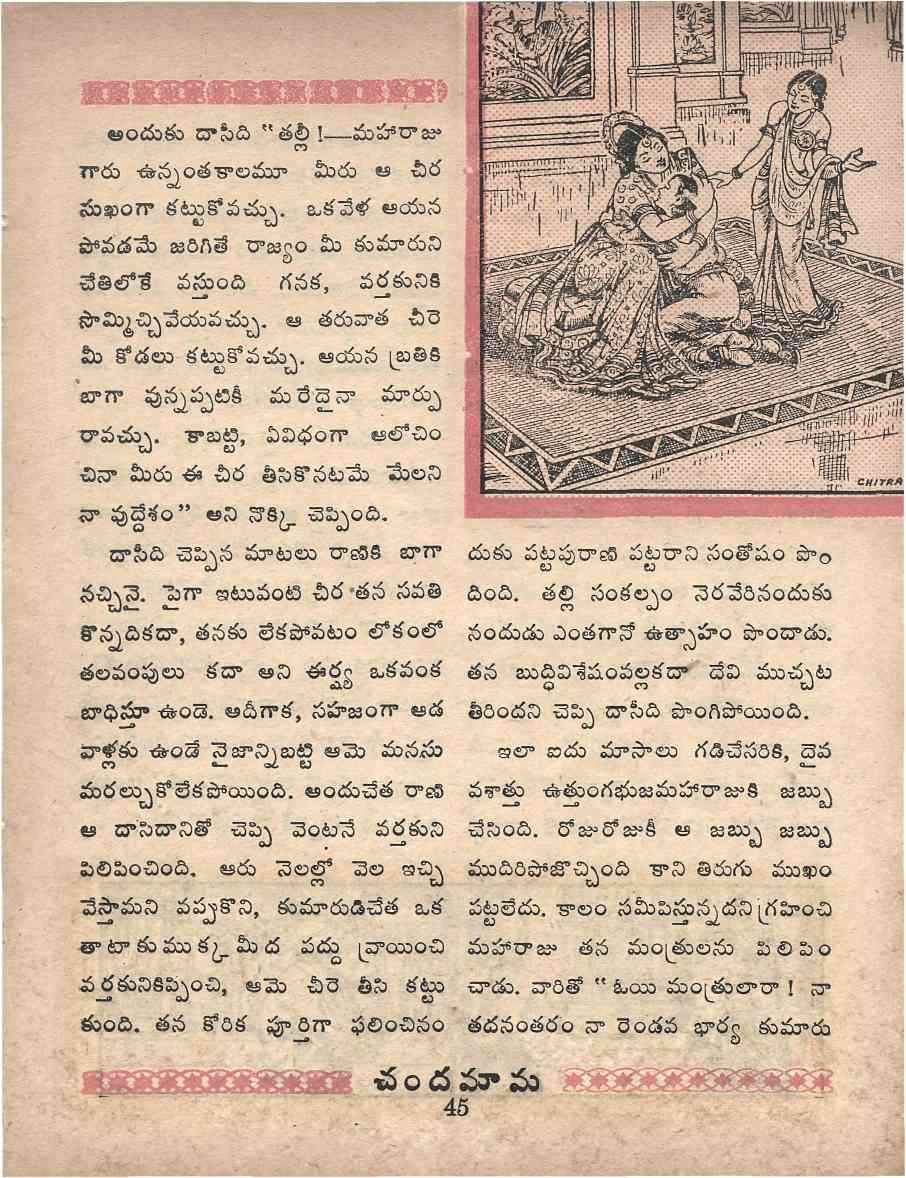 అందుకు దాసీది “తల్లీ !—మహారాజు
గారు ఉన్నంతకాలమూ మీరు ఆ చీర
సుఖంగా కట్టుకోవచ్చు. ఒకవేళ ఆయన
పోవడమే జరిగితే రాజ్యం మీ కుమారుని
చేతిలోకే వస్తుంది గనక, వర్తకునికి
సొమ్మిచ్చివేయవచ్చు. ఆ తరువాత చీరె
మీ కోడలు కట్టుకోవచ్చు. ఆయన బ్రతికి
బాగా వున్నప్పటికీ మరేదైనా మార్పు
రావచ్చు. కాబట్టి, ఏవిధంగా ఆలోచిం
చినా మీరు ఈ చీర తీసికొనటమే మేలని
నా వుద్దేశం” అని నొక్కి చెప్పింది.
దాసీది చెప్పిన మాటలు రాణికి బాగా
నచ్చినై. పైగా ఇటువంటి చీర తన సవతి
కొన్నదికదా, తనకు లేకపోవటం లోకంలో
తలవంపులు కదా అని ఈర్ష్య ఒకవంక
బాధిస్తూ ఉండె. అదీగాక, సహజంగా ఆడ
వాళ్లకు ఉండే నైజాన్నిబట్టి ఆమె మనసు
మరల్చుకోలేకపోయింది. అందుచేత రాణి
ఆ దాసిదానితో చెప్పి వెంటనే వర్తకుని
పిలిపించింది. ఆరు నెలల్లో వెల ఇచ్చి
వేస్తామని వప్పుకొని, కుమారుడిచేత ఒక
తాటాకుముక్క మీద పద్దు వ్రాయించి
వర్తకునికిప్పించి, ఆమె చీరె తీసి కట్టు
కుంది. తన కోరిక పూర్తిగా ఫలించినం
CHITRA
దుకు పట్టపురాణి పట్టరాని సంతోషం పొం
దింది. తల్లి సంకల్పం నెరవేరినందుకు
నందుడు ఎంతగానో ఉత్సాహం పొందాడు.
తన బుద్ధివిశేషంవల్లకదా దేవి ముచ్చట
తీరిందని చెప్పి దాసీది పొంగిపోయింది.
ఇలా ఐదు మాసాలు గడిచేసరికి, దైవ
వశాత్తు ఉత్తుంగభుజమహారాజుకి జబ్బు
చేసింది. రోజురోజుకీ ఆ జబ్బు జబ్బు
ముదిరిపోజొచ్చింది కాని తిరుగు ముఖం
పట్టలేదు. కాలం సమీపిస్తున్నదని గ్రహించి
మహారాజు తన మంత్రులను పిలిపిం
చాడు. వారితో “ ఓయి మంత్రులారా ! నా
తదనంతరం నా రెండవ భార్య కుమారు
చందమామ
45